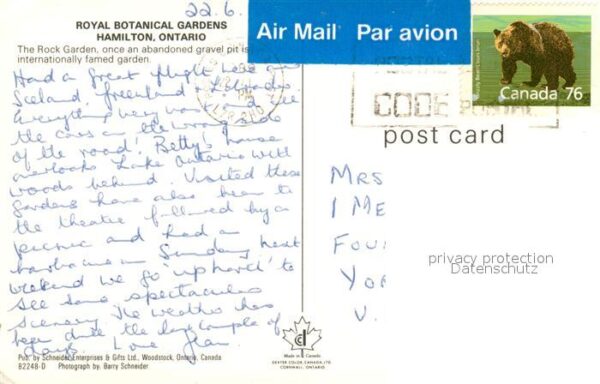 22.6.
ROYAL BOTANICAL GARDENS
HAMILTON, ONTARIO
The Rock Garden, once an abandoned gravel pit is
internationally famed garden.
Had a great flight here and
Iceland, Greenland & Labrador
everything very and all
the cars on the wrong side
of the road! Betty's house
overlooks Lake Ontario with
woods behind. Visited these
gardens have also been to
the theatre followed by a
picnic and had a
on Sunday next
weekend we go 'up north' to
see some spectacular
scenery. The weather has
been the last couple of
days. Love Jean
Pub. by Schneider Enterprises & Gifts Ltd., Woodstock, Ontario, Canada
82248-D Photograph by Barry Schneider
Air Mail Par avion
Canada 76
CODE POSTAL
post card
MRS
1 ME
FOU
YOR
U.
privacy protection
Datenschutz
Made in Canada
DEXTER COLOR CANADA LTD.
CORNWALL, ONTARIO